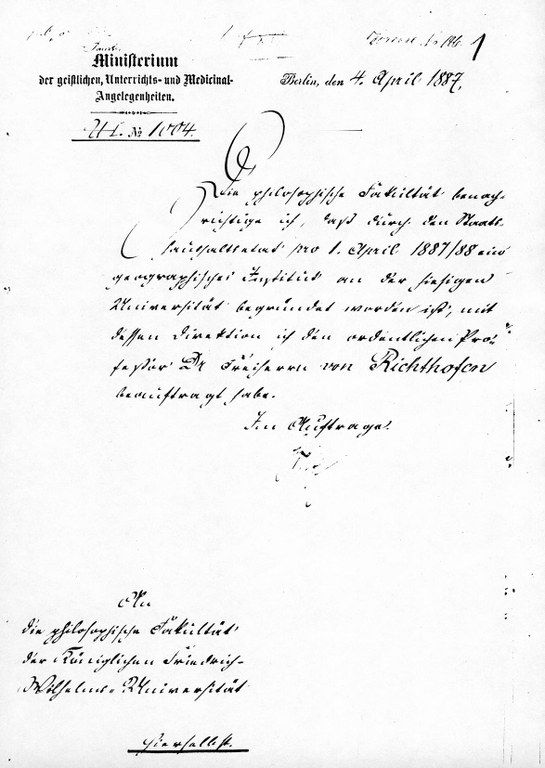 1
Ministerium
der geistlichen, Unterrichts- und Medicinal-
Angelegenheiten.
Berlin, den 4. April 1887.
U I. № 1004.
Die philosophische Fakultät benach-
richtige ich, daß durch den Staats-
haushaltsetat pro 1. April 1887/88 ein
geographisches Institut an der hiesigen
Universität begründet worden ist, mit
dessen Direktion ich den ordentlichen Pro-
fessor Dr Freiherrn von Richthofen
beauftragt habe.
Im Auftrage.
An
die philosophische Fakultät
der Königlichen Friedrich-
Wilhelms-Universität
hierselbst.